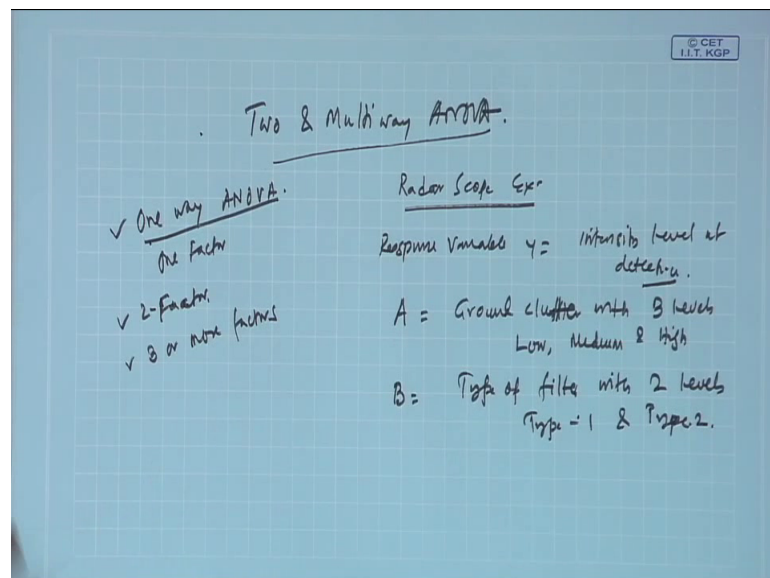 © CET
I.I.T. KGP
Two & Multiway ANOVA.
One way ANOVA.
One factor
2-Factor.
3 or more factors
Radar Scope Ex-
Response Variable y = intensity level at
detection.
A = Ground clutter with 3 levels
Low, Medium & High
B = Type of filter with 2 levels
Type-1 & Type 2.